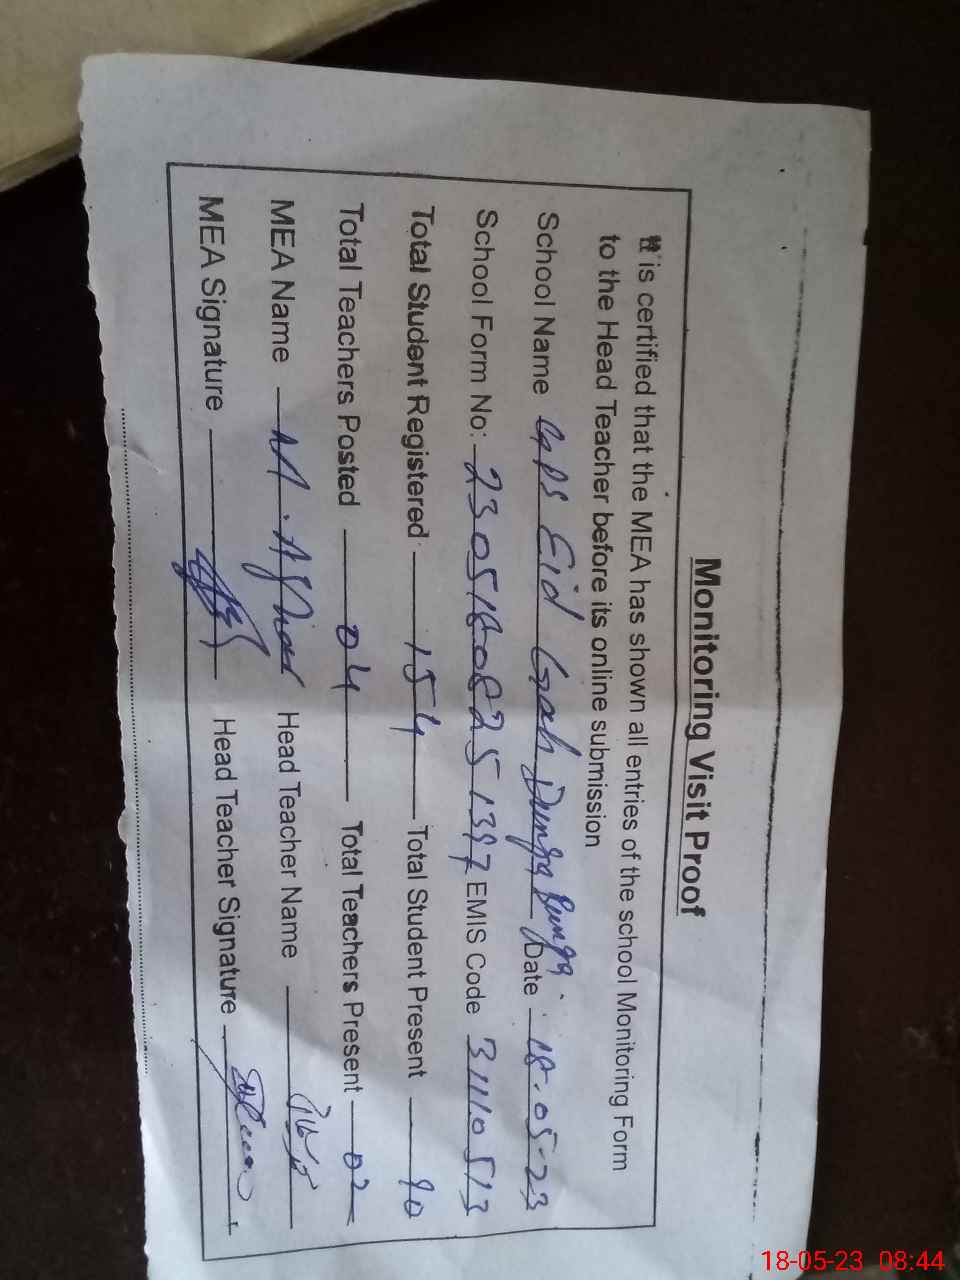 Monitoring Visit Proof
It is certified that the MEA has shown all entries of the school Monitoring Form
to the Head Teacher before its online submission
School Name GPS Eid Gah Dunga Bunga Date 18.05-23
School Form No: 23051808251397 EMIS Code 31110513
Total Student Registered 154 Total Student Present 90
Total Teachers Posted 04 Total Teachers Present 02
MEA Name Head Teacher Name
MEA Signature Head Teacher Signature
18-05-23 08:44